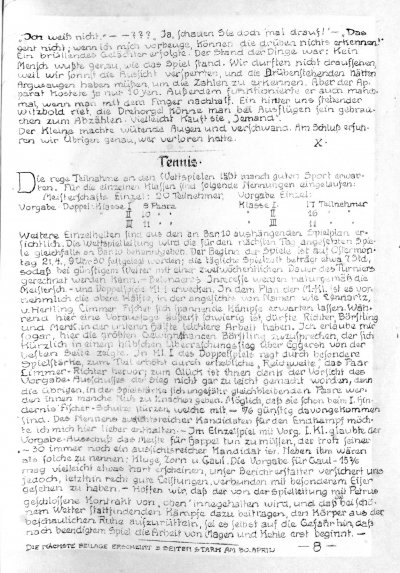 "Ich weiß nicht." — — ??? "Ja, schauen Sie doch mal drauf!" — "Das
geht nicht; wenn ich mich vorbeuge, können die drüben nichts erkennen!"
Ein brüllendes Gelächter erfolgte. Der Stand der Dinge war: Kein
Mensch wußte genau, wie das Spiel stand. Wir durften nicht draufsehen,
weil wir sonst die Aussicht versperrten, und die Drübenstehenden hätten
Argusaugen haben müssen, um die Zahlen zu erkennen. Aber der Ap-
parat kostete ja nur 10 Yen. Außerdem funktionierte er auch manch-
mal, wenn man mit dem Finger nachhalf. Ein hinter uns stehender
Witzbold rief, die Drehorgel könne man bei Ausflügen sein gebrau-
chen zum Abzählen. Vielleicht kauft sie "Jemand".
Der Kleine machte wütende Augen und verschwand. Am Schluß erfuh-
ren wir übrigens genau, wer verloren hatte.
X.
Tennis.
Die rege Teilnahme an den Wettspielen läßt manch guten Sport erwar-
ten. Für die einzelnen Klassen sind folgende Nennungen eingelaufen:
Meisterschafts-Einzel: 20 Teilnehmer. Vorgabe Einzel:
Vorgabe Doppel: Klasse I 8 Paare Klasse I 17 Teilnehmer
II 10 II 16
III 11 III
Weitere Einzelheiten sind aus den an Bar. 10 aushängenden Spielplan er-
sichtlich. Die Wettspielleitung wird die für den nächsten Tag angesetzten Spie-
le gleichfalls an Bar. 10 bekanntgeben. Der Beginn der Spiele ist auf Ostermon-
tag 21.4. festgesetzt worden; die tägliche Spielzeit beträgt etwa 7 Std.,
sodaß bei günstigem Wetter mit einer zweiwöchentlichen Dauer des Turniers
gerechnet werden kann. Besonderes Interesse werden naturgemäß die
Meistersch.- und Doppelspiele Kl. I erwecken. In dem Plan der M.-Kl. ist es vor-
nehmlich die obere Hälfte, in der angesichts von Namen wie Rennartz,
v. Hertling, Cimmer, Fischer sich spannende Kämpfe erwarten lassen. Wäh-
rend hier eine Voraussage äußerst schwierig ist, dürfte Richter, Börstling
und Merk in der unteren Hälfte leichtere Arbeit haben. Ich erlaube mir
sogar, hier die größten Gewinnchancen Börstling zuzusprechen, der sich
kürzlich in einem fröhlichen Überraschungssieg über Eggersh von der
besten Seite zeigte. In Kl. I des Doppelspiels ragt durch besondere
Spielstärke, zum Teil erhöht durch erhebliche Reichweite, das Paar
Cimmer-Richter hervor; zum Glück ist ihnen durch die Vorsicht des
Vorgabe-Ausschußes der Sieg nicht gar zu leicht gemacht worden, denn
die übrigen, in der Spielstärke sich ungefähr gleichbleibenden Paare wer-
den ihnen manche Nuß zu knacken geben. Möglich, daß sie schon beim I. Hin-
dernis Fischer-Schulze stürzen, welche mit günstig davongekommen
sind. Des Nennens aussichtsreicher Kandidaten für den Endkampf möch-
te ich mich hier lieber enthalten. — Im Einzelspiel mit Vorg. Kl. I glaubte der
Vorgabe-Ausschuß das Meiste für Happel tun zu müssen, der trotz seiner
- 30 immer noch ein aussichtsreicher Kandidat ist. Neben ihm wären
als solche zu nennen: Kluge, Zorn u. Gaul. Die Vorgabe für Gaul - 15
mag vielleicht etwas hart erscheinen, unser Berichterstatter versichert uns
jedoch, letzthin recht gute Leistungen, verbunden mit besonderem Eifer
gesehen zu haben. — Hoffen wir, daß der von der Spielleitung mit Petrus
geschlossene Kontrakt von "oben" innegehalten wird, und daß bei schö-
nem Wetter stattfindenden Kämpfe dazu beitragen, den Körper aus der
beschaulichen Ruhe aufzurütteln, sei es selbst auf die Gefahr hin, daß
nach beendigtem Spiel die Arbeit von Magen und Kehle erst beginnt. —
DIE NÄCHSTE BEILAGE ERSCHEINT 3 SEITEN STARK AM 30. APRIL
— 8 —